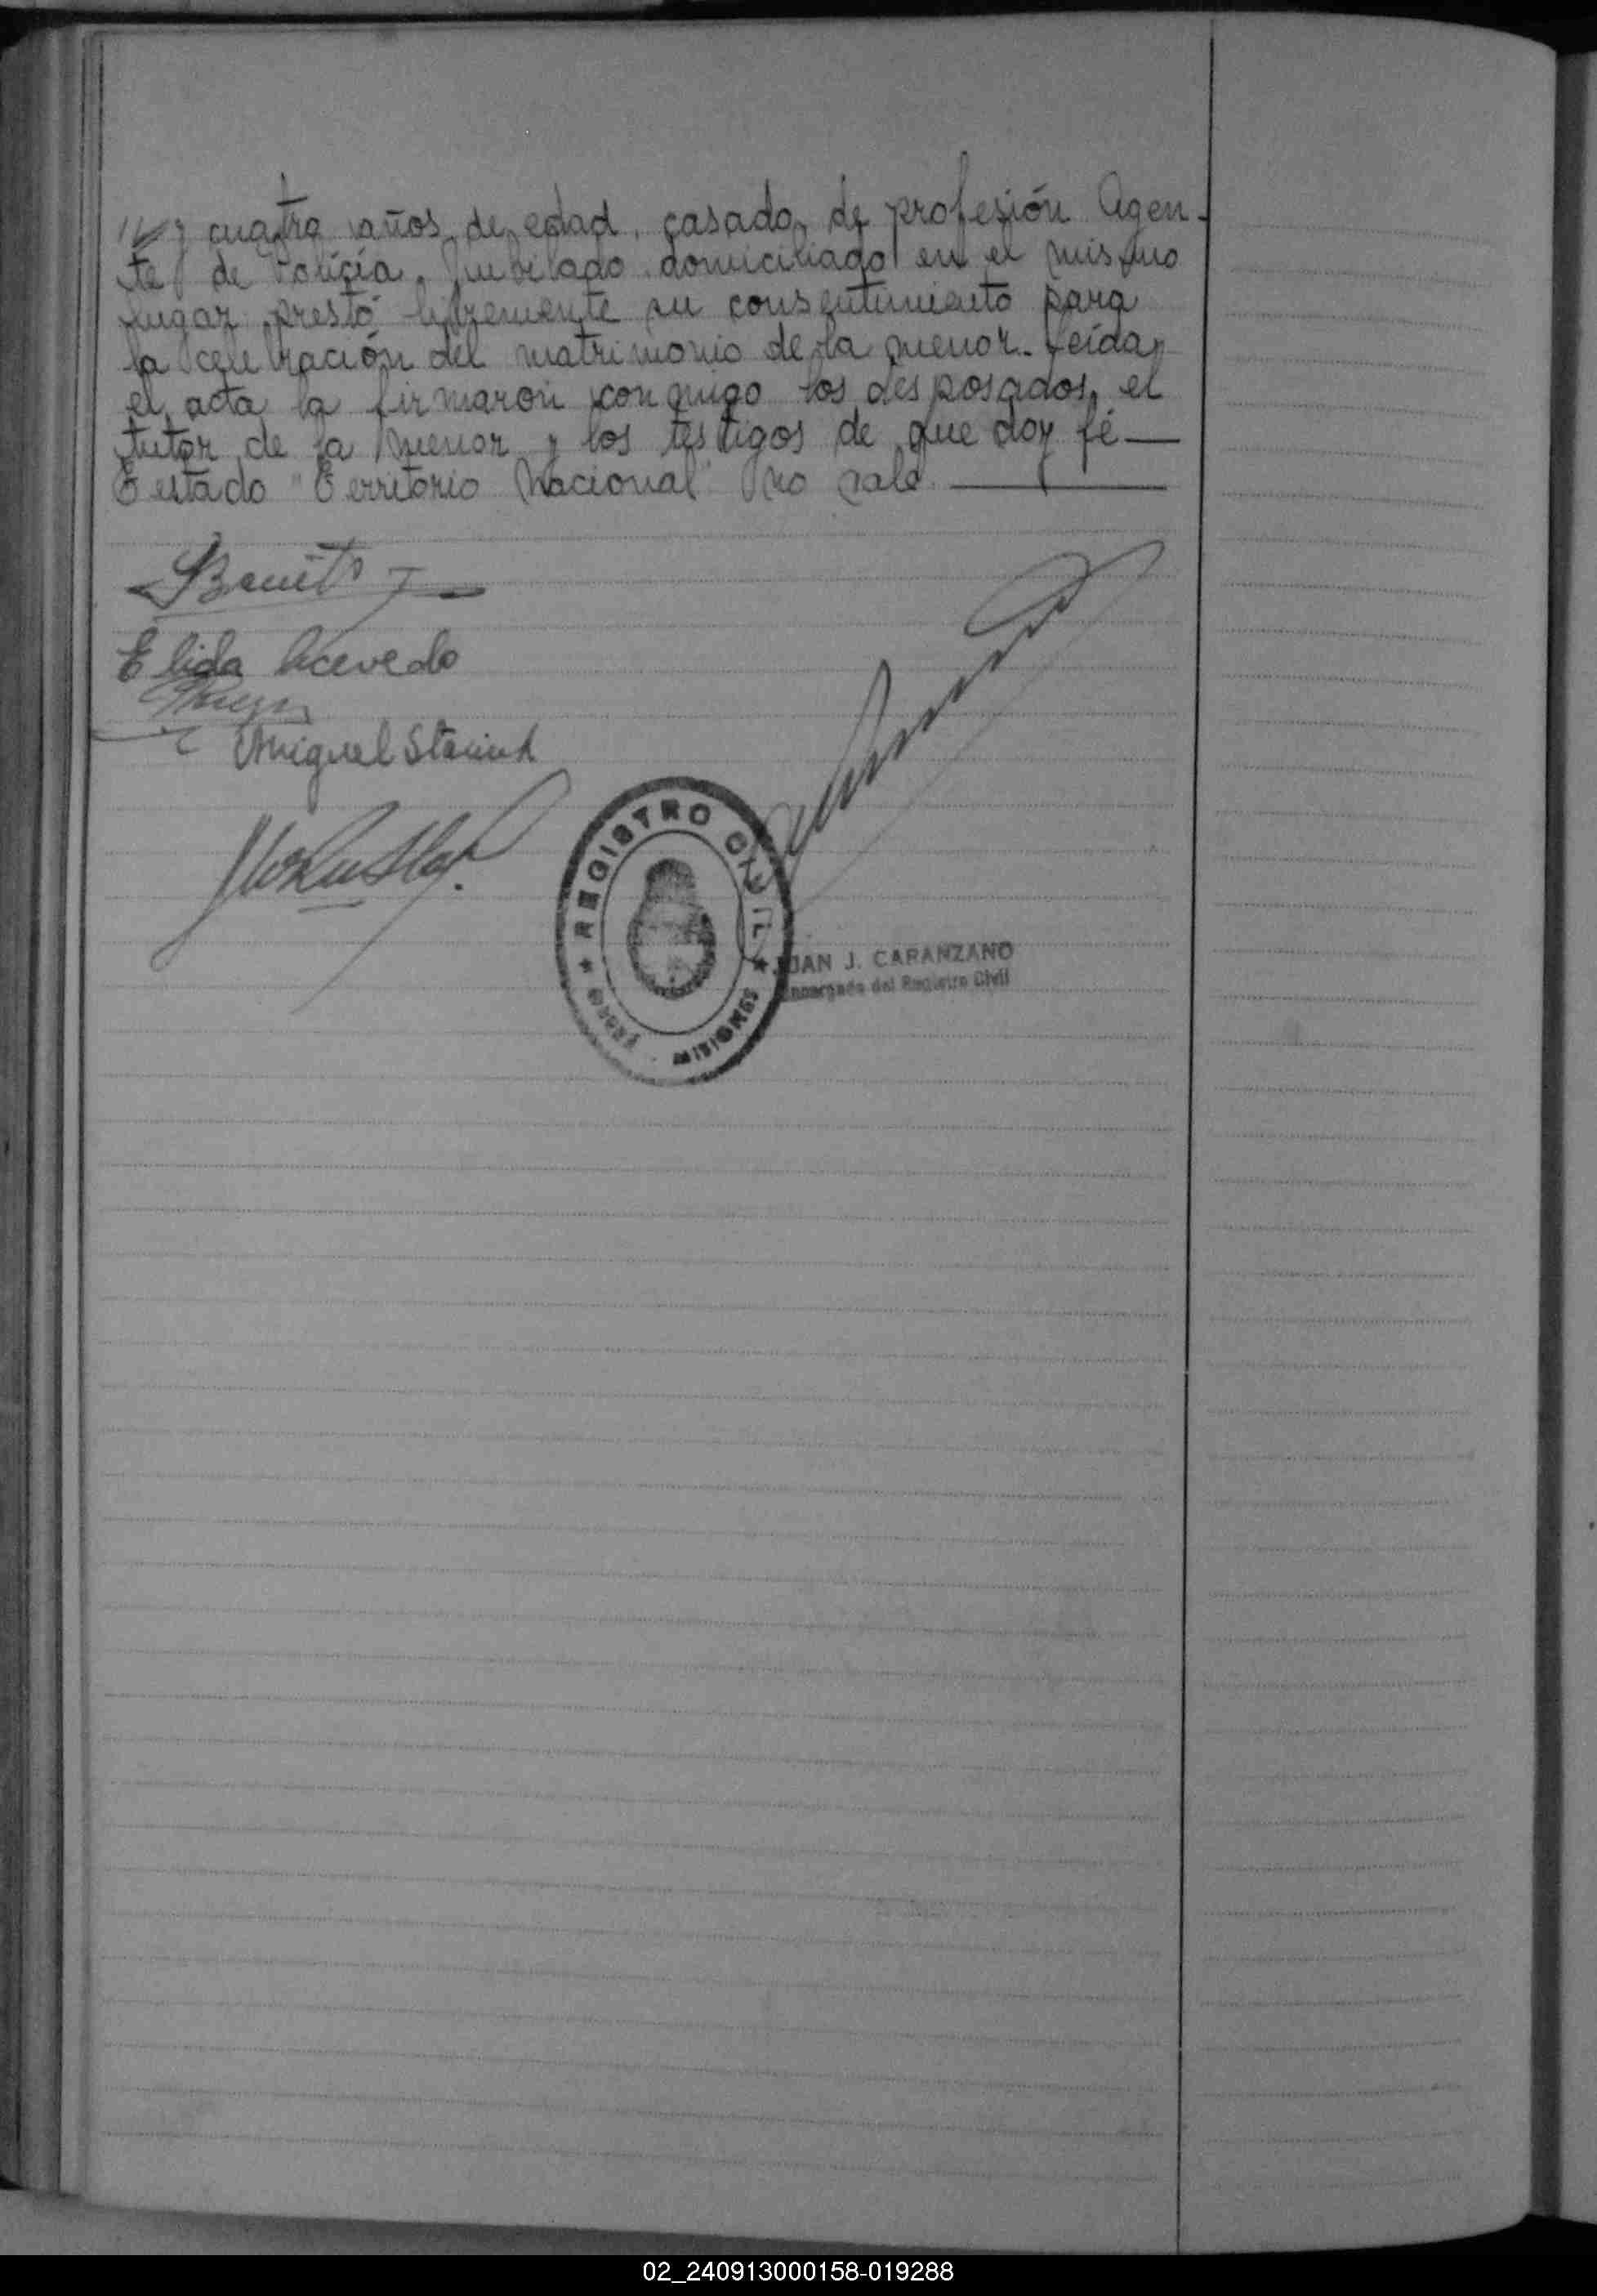 y cuatro años de edad, casado, de profesión Agen-
te de Policía, Jubilado domiciliado en el mismo
lugar prestó libremente su consentimiento para
la celebración del matrimonio de la menor. Leída
el acta la firmaron conmigo los desposados, el
tutor de la menor y los testigos de que doy fé—
Testado "Territorio Nacional" no vale.
Benito
Elida Acevedo
Miguel
REGISTRO CIVIL
MISIONES
JUAN J. CARANZANO
Encargado del Registro Civil
02_240913000158-019288